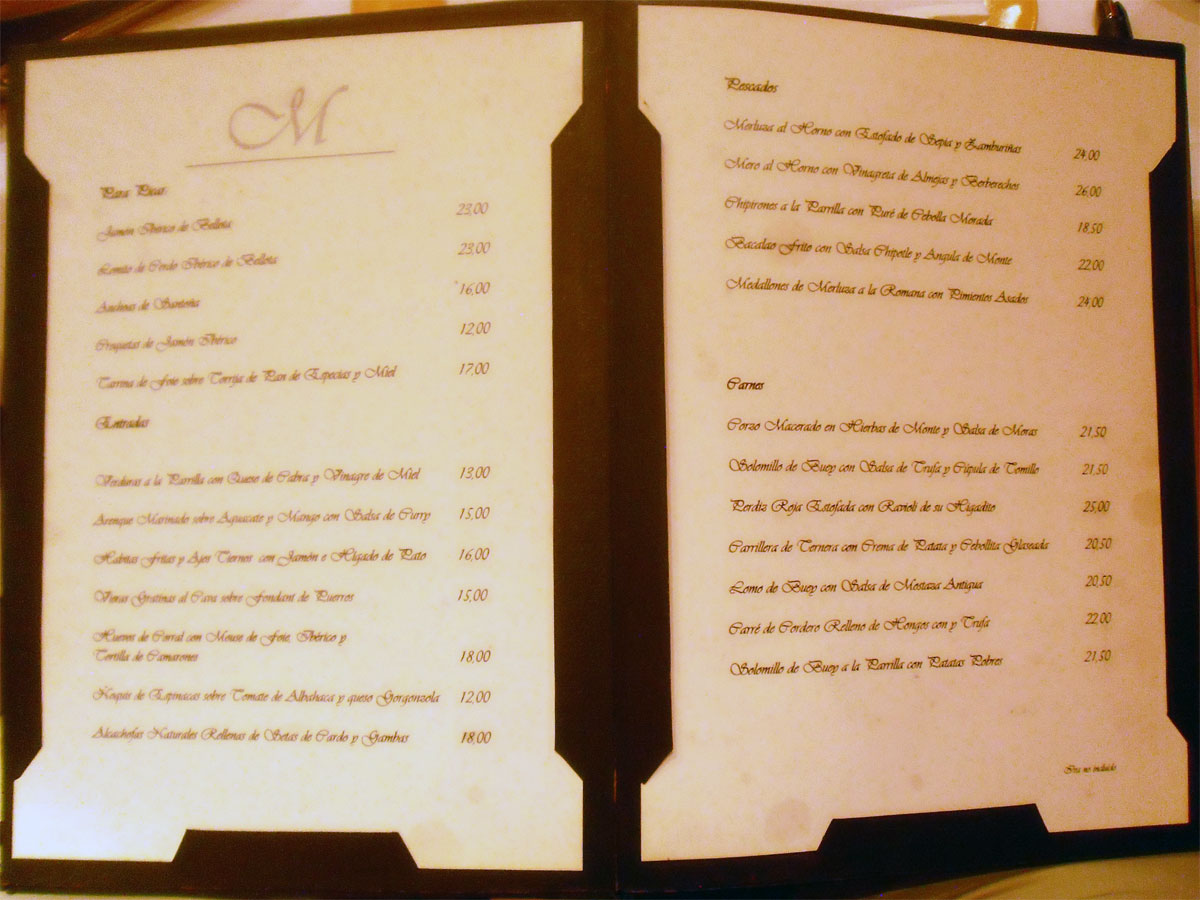 M
Para Picar
Jamón Ibérico de Bellota 23,00
Lomito de Cerdo Ibérico de Bellota 23,00
Anchoas de Santoña 16,00
Croquetas de Jamón Ibérico 12,00
Tarrina de Foie sobre Torrija de Pan de Especias y Miel 17,00
Entradas
Verduras a la Parrilla con Queso de Cabra y Vinagre de Miel 13,00
Arenque Marinado sobre Aguacate y Mango con Salsa de Curry 15,00
Habitas Fritas y Ajos Tiernos con Jamón e Hígado de Pato 16,00
Vieras Gratinas al Cava sobre Fondant de Puerros 15,00
Huevos de Corral con Mouse de Foie, Ibérico y
Tortilla de Camarones 18,00
Ñoquis de Espinacas sobre Tomate de Albahaca y queso Gorgonzola 12,00
Alcachofas Naturales Rellenas de Setas de Cardo y Gambas 18,00
Pescados
Merluza al Horno con Estofado de Sepia y Zamburiñas 24,00
Mero al Horno con Vinagreta de Almejas y Berberechos 26,00
Chipirones a la Parrilla con Puré de Cebolla Morada 18,50
Bacalao Frito con Salsa Chipotle y Angula de Monte 22,00
Medallones de Merluza a la Romana con Pimientos Asados 24,00
Carnes
Corzo Macerado en Hierbas de Monte y Salsa de Moras 21,50
Solomillo de Buey con Salsa de Trufa y Cúpula de Tomillo 21,50
Perdíz Roja Estofada con Ravioli de su Higadito 25,00
Carrillera de Ternera con Crema de Patata y Cebollita Glaseada 20,50
Lomo de Buey con Salsa de Mostaza Antigua 20,50
Carré de Cordero Relleno de Hongos con y Trufa 22,00
Solomillo de Buey a la Parrilla con Patatas Pobres 21,50
Iva no incluido